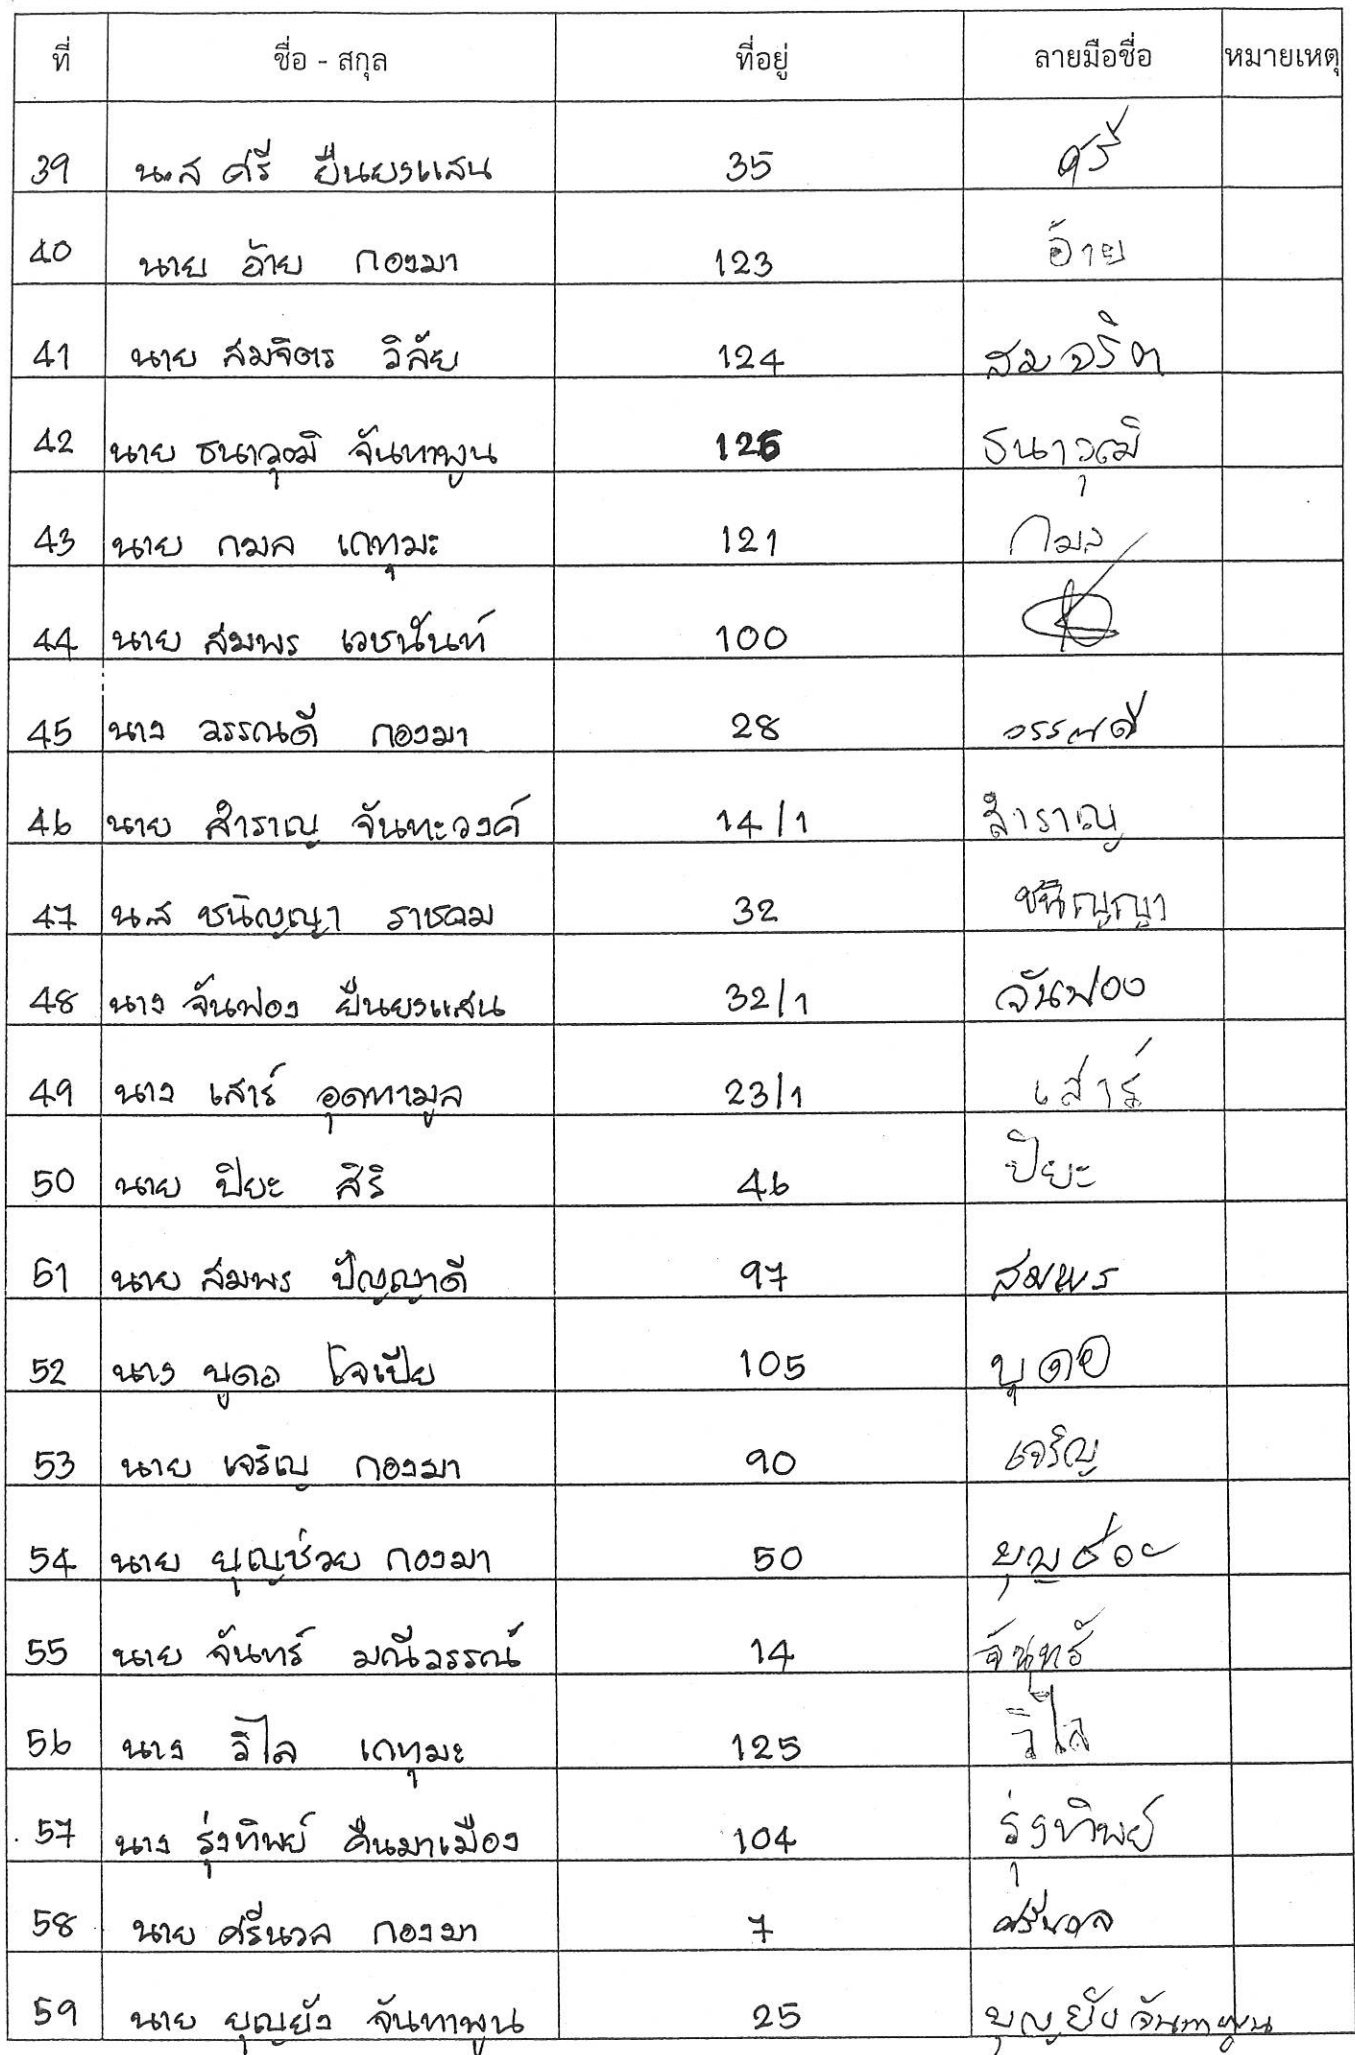 ที่ ชื่อ - สกุล ที่อยู่ ลายมือชื่อ หมายเหตุ
39 น.ส ศรี ยืนยงแสน 35 ศรี
40 นาย อ้าย กองมา 123 อ้าย
41 นาย สมจิตร วิลัย 124 สมจริต
42 นาย ธนาวุฒิ จันทาพูน 126 ธนาวุฒิ
43 นาย กมล เกทุมะ 121 กมล
44 นาย สมพร เวชนันท์ 100
45 นาง วรรณดี กองมา 28 วรรณดี
46 นาย สำราญ จันทะวงค์ 14/1 สำราญ
47 น.ส ชนิญญา ราชคม 32 ชนิญญา
48 นาง จันฟอง ยืนยงแสน 32/1 จันฟอง
49 นาง เสาร์ อุดทามูล 23/1 เสาร์
50 นาย ปิยะ สิริ 46 ปิยะ
51 นาย สมพร ปัญญาดี 97 สมพร
52 นาง บูดอ โจเปีย 105 บูดอ
53 นาย เจริญ กองมา 90 เจริญ
54 นาย บุญช่วย กองมา 50
55 นาย จันทร์ มณีวรรณ์ 14 จันทร์
56 นาง วิไล เกทุมะ 125 วิไล
57 นาง รุ่งทิพย์ คืนมาเมือง 104 รุ่งทิพย์
58 นาย ศรีนวล กองมา 7 ศรีนวล
59 นาย บุญยัง จันทาพูน 25 บุญยัง จันทาพูน